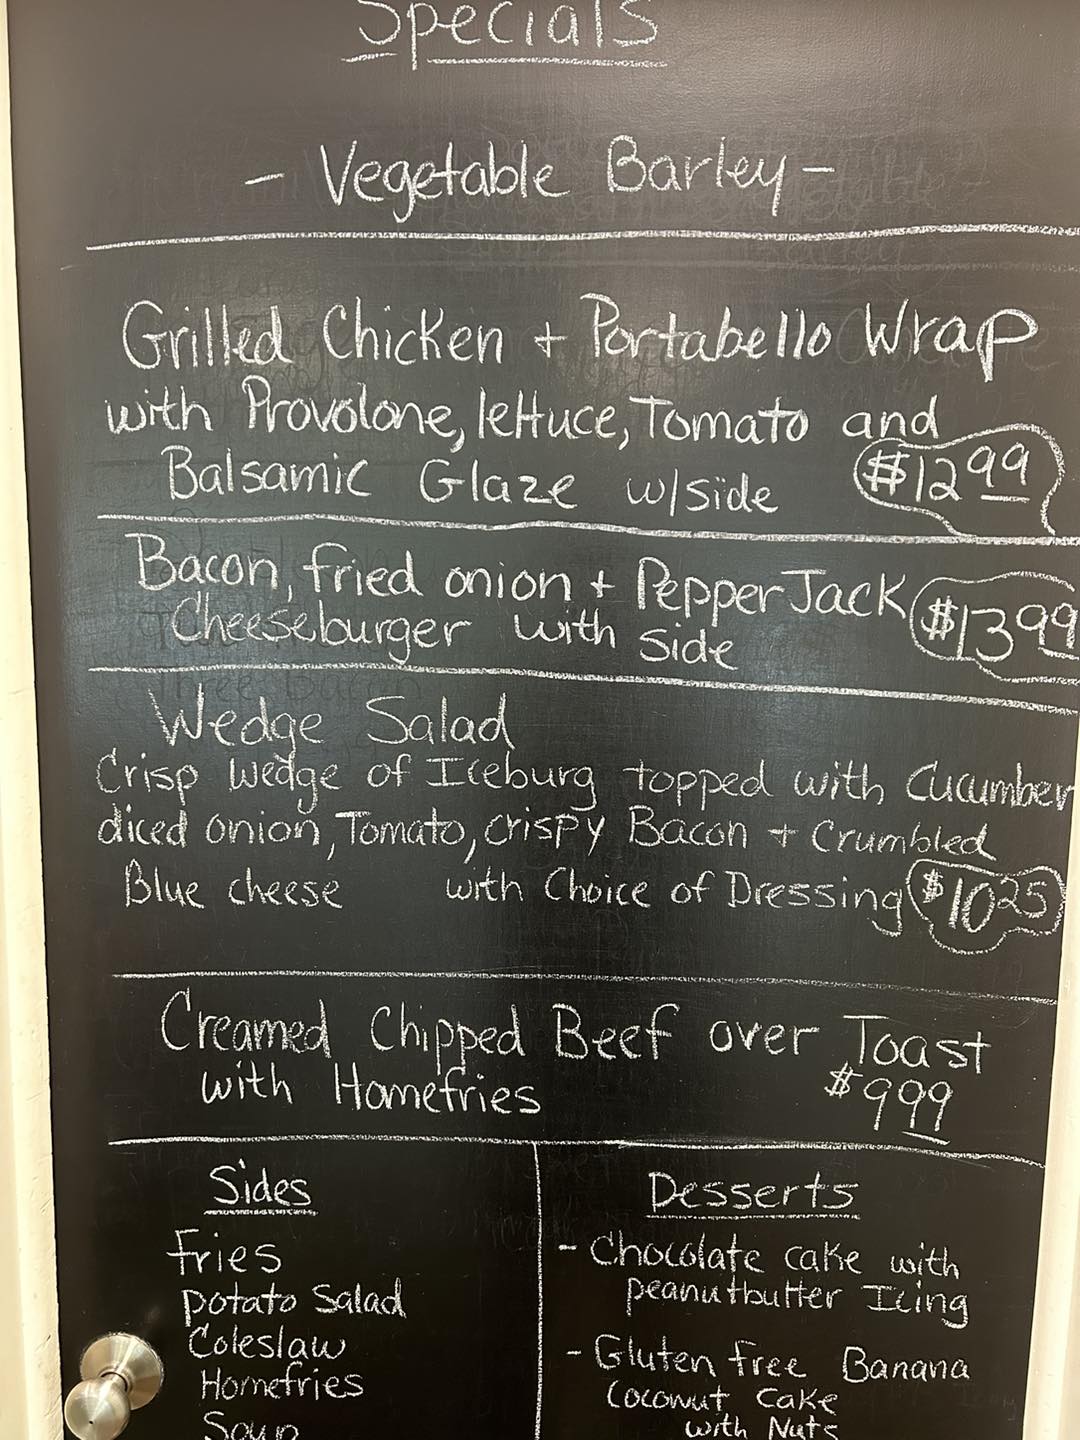 Specials
- Vegetable Barley -
Grilled Chicken + Portabello Wrap
with Provolone, lettuce, Tomato and
Balsamic Glaze w/side $12 99
Bacon, fried onion + Pepper Jack
Cheeseburger with side $13 99
Wedge Salad
Crisp wedge of Iceburg topped with Cucumber
diced onion, Tomato, crispy Bacon + Crumbled
Blue cheese with Choice of Dressing $10 25
Creamed Chipped Beef over Toast
with Homefries $9 99
Sides
fries
potato Salad
Coleslaw
Homefries
Soup
Desserts
- Chocolate cake with
peanutbutter Icing
- Gluten free Banana
Coconut Cake
with Nuts